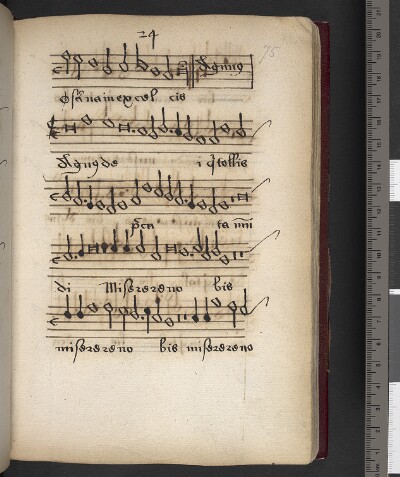 24
75
Osanna in excel cis
Agnus
Agnus de i q tollis
pcca ta mū
di Miserere no bis
miserere no bis miserere no